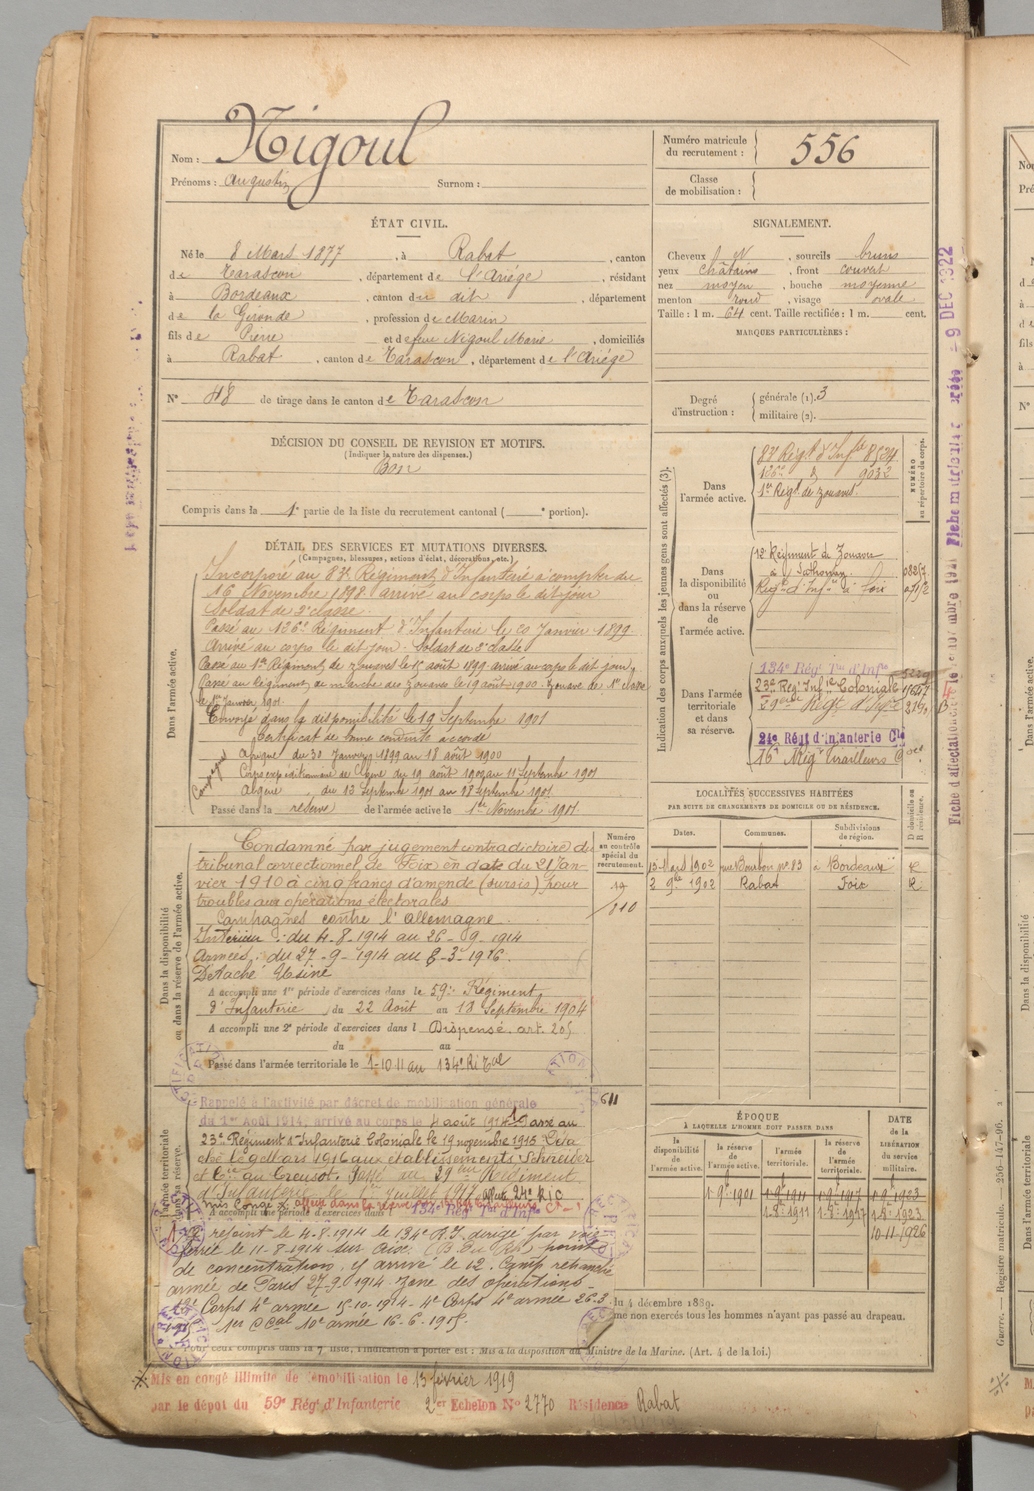 Nom : Nigoul
Prénoms : Augustin Surnom :
Numéro matricule du recrutement : 556
Classe de mobilisation :
ÉTAT CIVIL.
Né le 8 Mars 1877, à Rabat, canton
de Tarascon, département de l'Ariége, résidant
à Bordeaux, canton du dit, département
de la Gironde, profession de Marin
fils de Pierre et de feue Nigoul Marie, domiciliés
à Rabat, canton de Tarascon, département de l'Ariége
N° 48 de tirage dans le canton de Tarascon
SIGNALEMENT.
Cheveux N, sourcils bruns
yeux châtains, front couvert
nez moyen, bouche moyenne
menton rond, visage ovale
Taille : 1 m. 64 cent. Taille rectifiée : 1 m. cent.
MARQUES PARTICULIÈRES :
Degré d'instruction : générale (1). 3
militaire (2).
DÉCISION DU CONSEIL DE REVISION ET MOTIFS.
(Indiquer la nature des dispenses.)
Bon
Compris dans la 1e partie de la liste du recrutement cantonal ( e portion).
DÉTAIL DES SERVICES ET MUTATIONS DIVERSES.
(Campagnes, blessures, actions d'éclat, décorations, etc.)
Dans l'armée active.
Incorporé au 83e Régiment d'Infanterie à compter du
16 Novembre 1898 arrivé au corps le dit jour
Soldat de 2e classe
Passé au 126e Régiment d'Infanterie le 20 Janvier 1899
Arrivé au corps le dit jour. Soldat de 2e classe
Passé au 1er Régiment de zouaves le 15 août 1899 arrivé au corps le dit jour,
Passé au Régiment de marche des Zouaves le 19 août 1900. Zouave de 1re classe
le 1er Janvier 1901
Envoyé dans la disponibilité le 19 Septembre 1901
Certificat de bonne conduite accordé
Campagnes
Afrique du 30 Janvier 1899 au 18 août 1900
Corps expéditionnaire de Chine du 19 août 1900 au 11 Septembre 1901
Algérie du 13 Septembre 1901 au 18 Septembre 1901
Passé dans la réserve de l'armée active le 1er Novembre 1901
Indication des corps auxquels les jeunes gens sont affectés (3).
NUMÉRO au répertoire du corps.
Dans l'armée active.
83 Régt d'Infie 8524
126e d° 9032
1er Régt de zouaves.
Dans la disponibilité ou dans la réserve de l'armée active.
12e Régiment de Zouaves
à Sathonay
Régt d'Infie à Foix
Dans l'armée territoriale et dans sa réserve.
134e Régt Tre d'Infie
23e Reg. Infie Coloniale
29ème Régt d'Infie
21e Régt d'infanterie Cle
16e Rég Tirailleurs
Fiche matricule créée 9 DEC 1922
LOCALITÉS SUCCESSIVES HABITÉES
PAR SUITE DE CHANGEMENTS DE DOMICILE OU DE RÉSIDENCE.
Dates. Communes. Subdivisions de région. D domicile ou R résidence.
13 Mars 1902 rue Bourbon n° 83 à Bordeaux R
2 9bre 1902 Rabat Foix R
Dans la disponibilité ou dans la réserve de l'armée active.
Numéro au contrôle spécial du recrutement.
Condamné par jugement contradictoire du
tribunal correctionnel de Foix en date du 21 Jan-
vier 1910 à cinq francs d'amende (sursis) pour
troubles aux opérations électorales
Campagnes contre l'allemagne
Intérieur : du 4-8-1914 au 26-9-1914
Armées : du 27-9-1914 au 8-3-1916.
Detaché Usine
A accompli une 1re période d'exercices dans le 59e Régiment
d'Infanterie, du 22 Août au 18 Septembre 1904
A accompli une 2e période d'exercices dans l Dispensé. art. 205
du au
Passé dans l'armée territoriale le 1-10 11 au 134e Ri Tal
611
l'armée territoriale
Rappelé à l'activité par décret de mobilisation générale
du 1er Août 1914, arrivé au corps le 4 août 1914. Passé au
23e Régiment d'Infanterie Coloniale le 19 novembre 1915. Déta
ché le 9 Mars 1916 aux établissements Schneider
et Cie au Creusot. Passé au 29ème Régiment
d'Infanterie le 1er Juillet 1917. affecté 21e RIC
A accompli une période d'exercices dans l 134e Rég Tre d'Infie
A rejoint le 4-8-1914 le 134e R.I. dirigé par voie
ferrée le 11-8-1914 sur
de concentration, y arrive le 12. Camp retranché
armée de Paris 27-9-1914 zone des opérations-
12e Corps 4e armée 15-10-1914- 4e Corps 4e armée 26-3
1er C Cal 10e armée 16-6-1915.
ÉPOQUE
À LAQUELLE L'HOMME DOIT PASSER DANS
la disponibilité de l'armée active.
la réserve de l'armée active.
l'armée territoriale.
la réserve de l'armée territoriale.
DATE de la LIBÉRATION du service militaire.
1-9bre-1901 1-9bre-1911 1-9bre-1917 1-9bre-1923
1-8bre-1911 1-8bre-1917 1-8bre-1923
10-11-1926
du 4 décembre 1889.
me non exercés tous les hommes n'ayant pas passé au drapeau.
Pour ceux compris dans la 7e liste, l'indication à porter est : Mis à la disposition du Ministre de la Marine. (Art. 4 de la loi.)
Mis en congé illimité de démobilisation le 13 février 1919
par le dépôt du 59e Régt d'Infanterie 2er Echelon N° 2770 Résidence Rabat
Guerre. — Registre matricule. — 256-147-96.